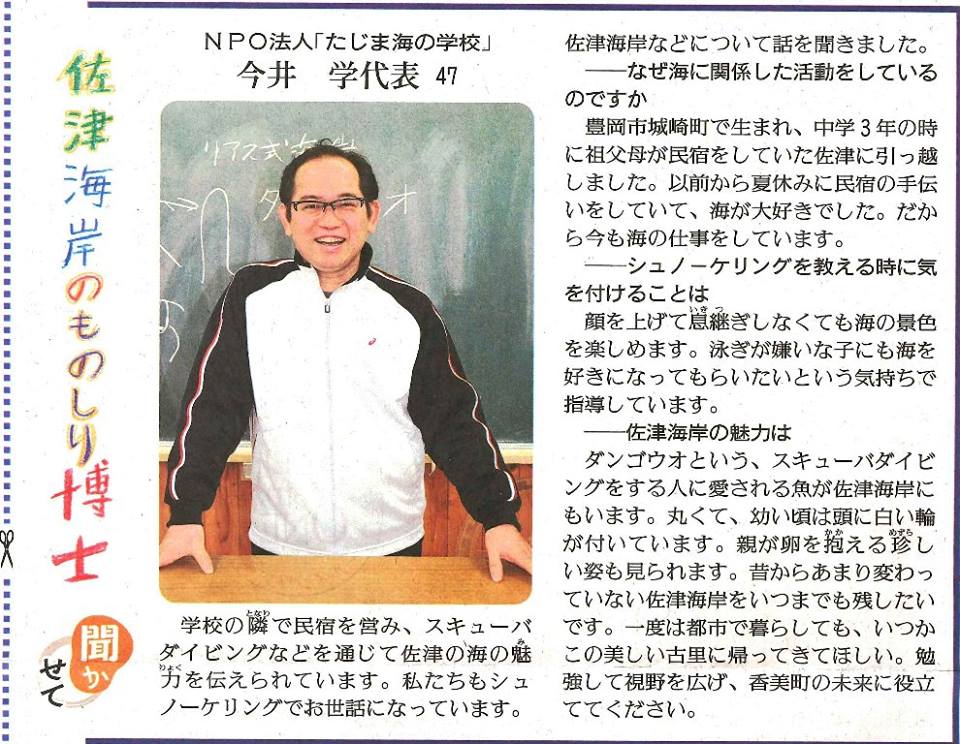 佐津海岸のものしり博士
聞かせて
NPO法人「たじま海の学校」
今井　学代表 47
リアス式海
となり　み
学校の隣で民宿を営み、スキューバ
ダイビングなどを通じて佐津の海の魅
りょく
力を伝えられています。私たちもシュ
ノーケリングでお世話になっています。
佐津海岸などについて話を聞きました。
――なぜ海に関係した活動をしている
のですか
豊岡市城崎町で生まれ、中学3年の時
に祖父母が民宿をしていた佐津に引っ越
しました。以前から夏休みに民宿の手伝
いをしていて、海が大好きでした。だか
ら今も海の仕事をしています。
――シュノーケリングを教える時に気
を付けることは
いきつ
顔を上げて息継ぎしなくても海の景色
を楽しめます。泳ぎが嫌いな子にも海を
好きになってもらいたいという気持ちで
指導しています。
――佐津海岸の魅力は
ダンゴウオという、スキューバダイビ
ングをする人に愛される魚が佐津海岸に
もいます。丸くて、幼い頃は頭に白い輪
かか　めずら
が付いています。親が卵を抱える珍し
い姿も見られます。昔からあまり変わっ
ていない佐津海岸をいつまでも残したい
です。一度は都市で暮らしても、いつか
この美しい古里に帰ってきてほしい。勉
強して視野を広げ、香美町の未来に役立
ててください。